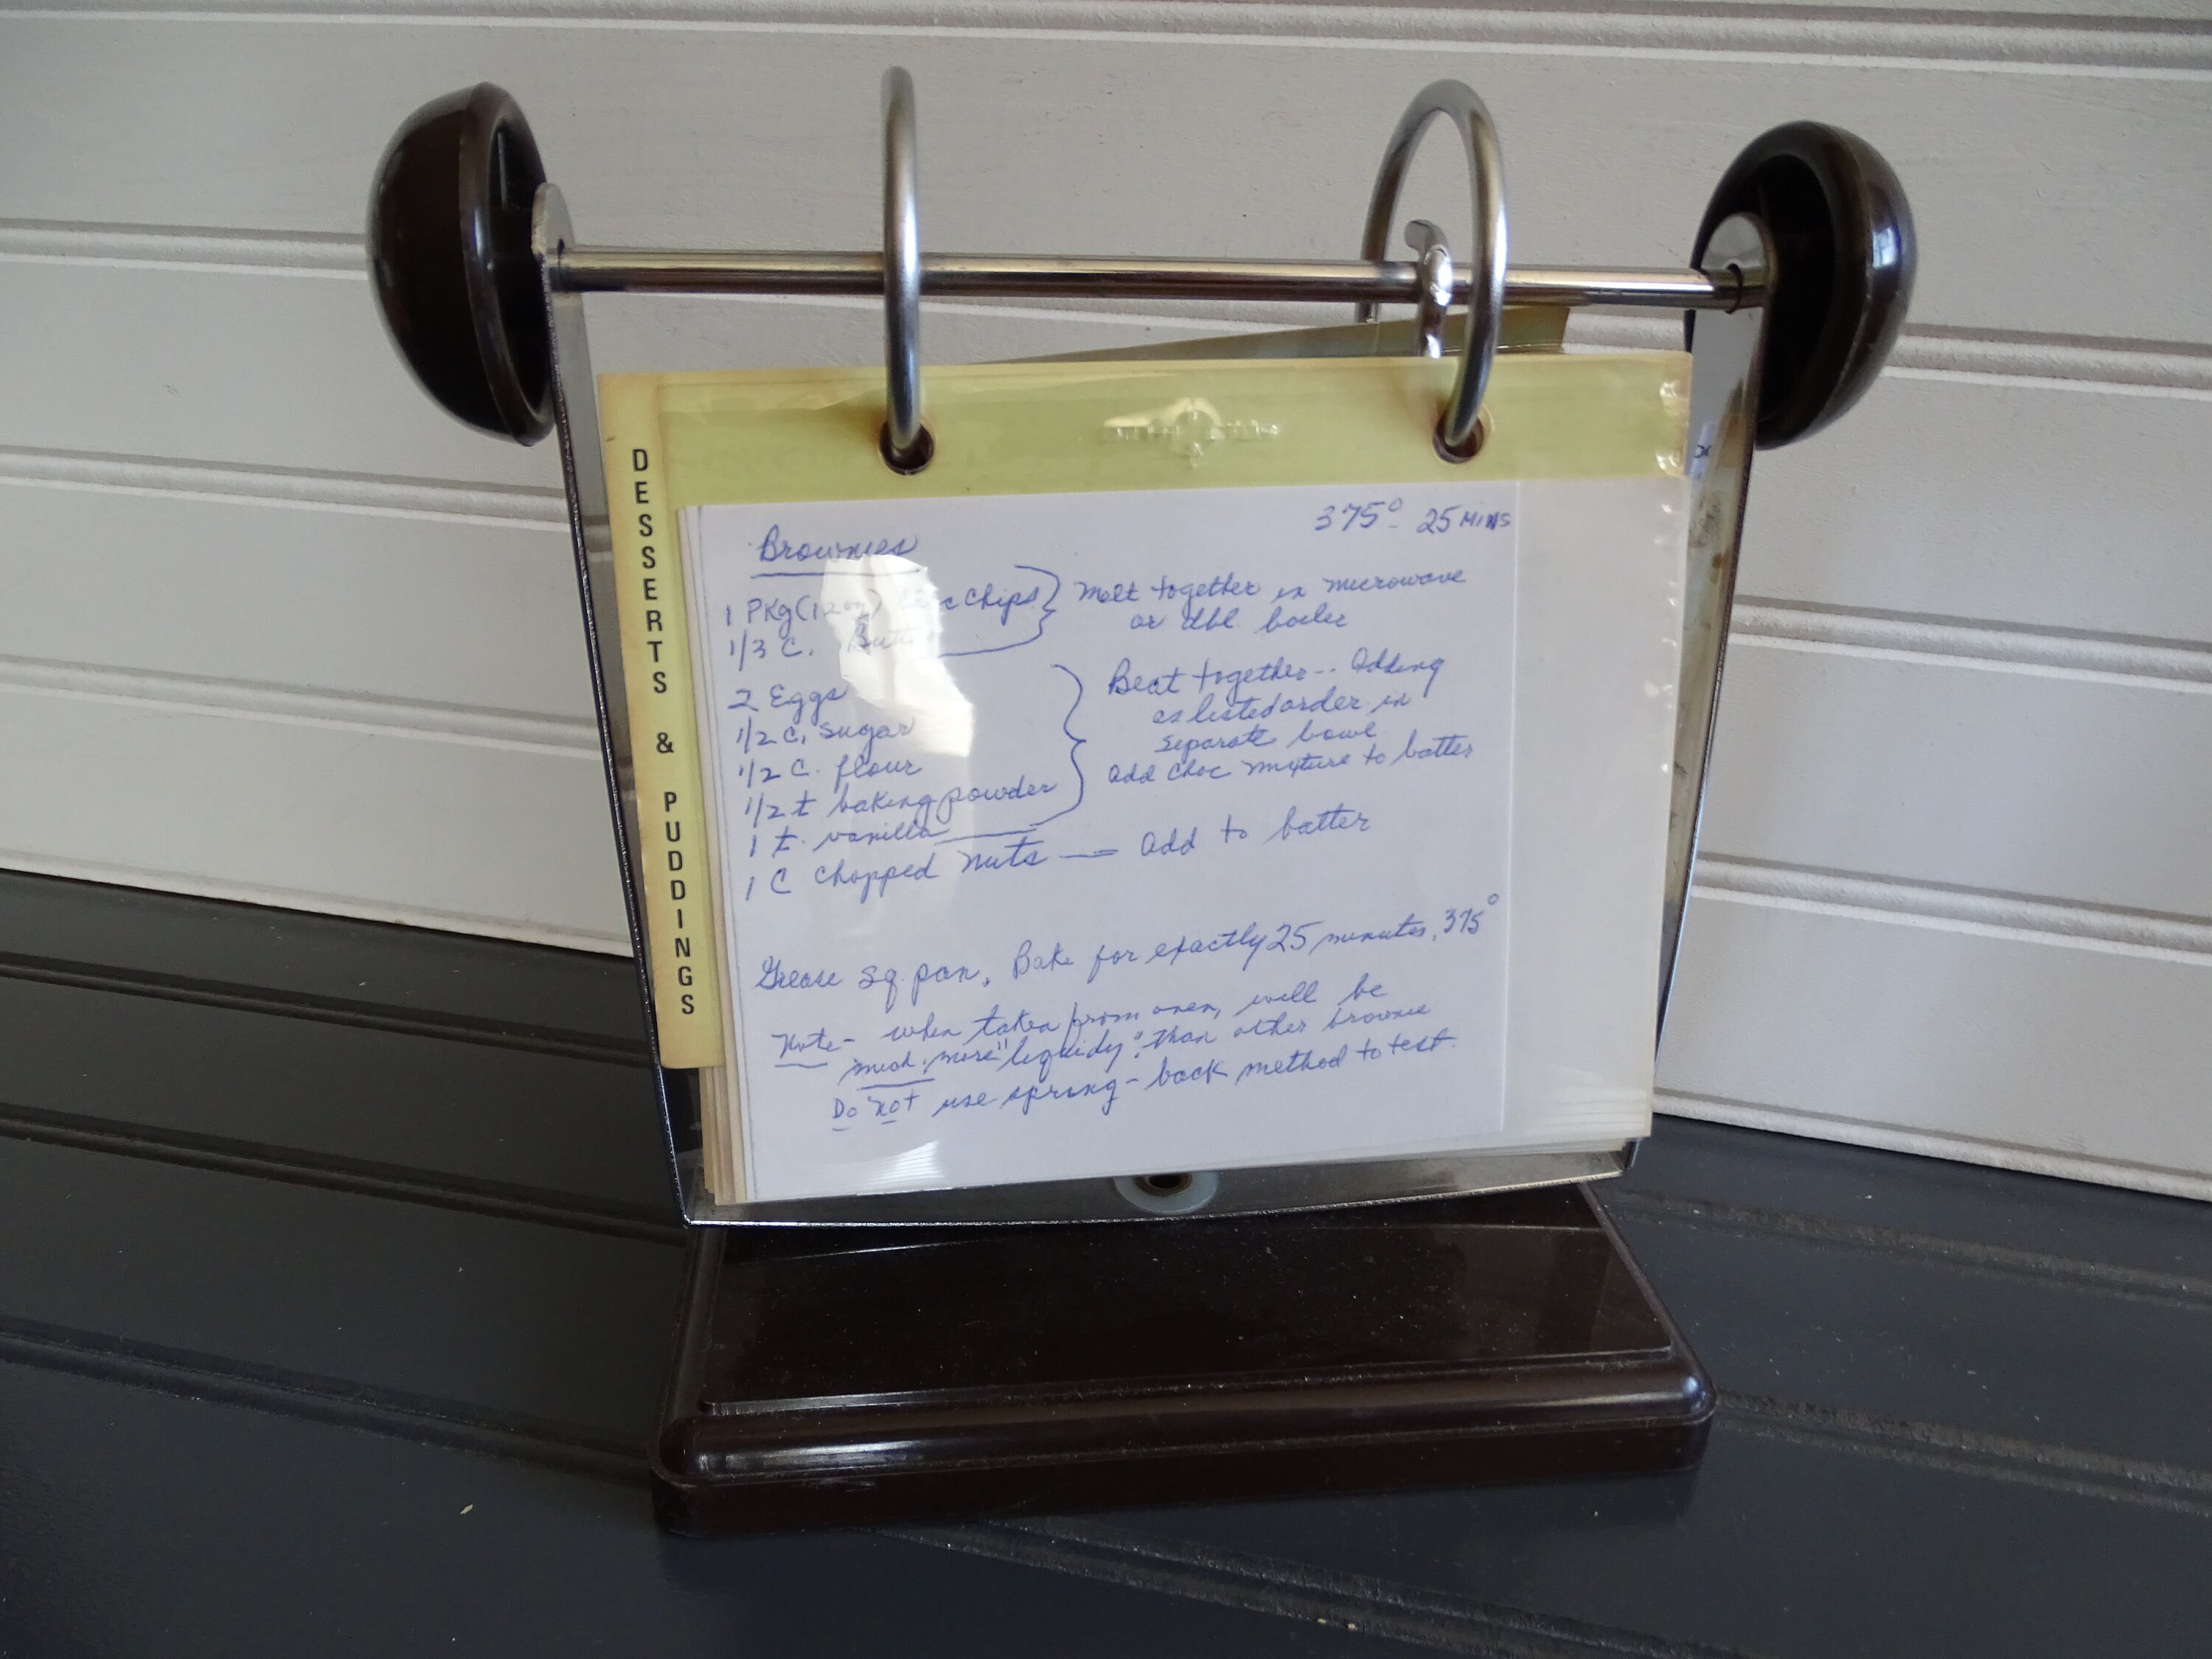 DESSERTS & PUDDINGS
375° 25 MINS
Brownies
1 PKg (12 oz) choc chips } Melt together in microwave
1/3 C. Butter or dbl. boiler
2 Eggs
1/2 C. sugar
1/2 C. flour
1/2 t baking powder
1 t. vanilla
Beat together -- Adding
as listed order in
separate bowl
add choc mixture to batter
1 C chopped nuts — Add to batter
Grease sq. pan. Bake for exactly 25 minutes, 375°
Note - when taken from oven, will be
much more "liquidy" than other brownie
Do not use spring-back method to test.